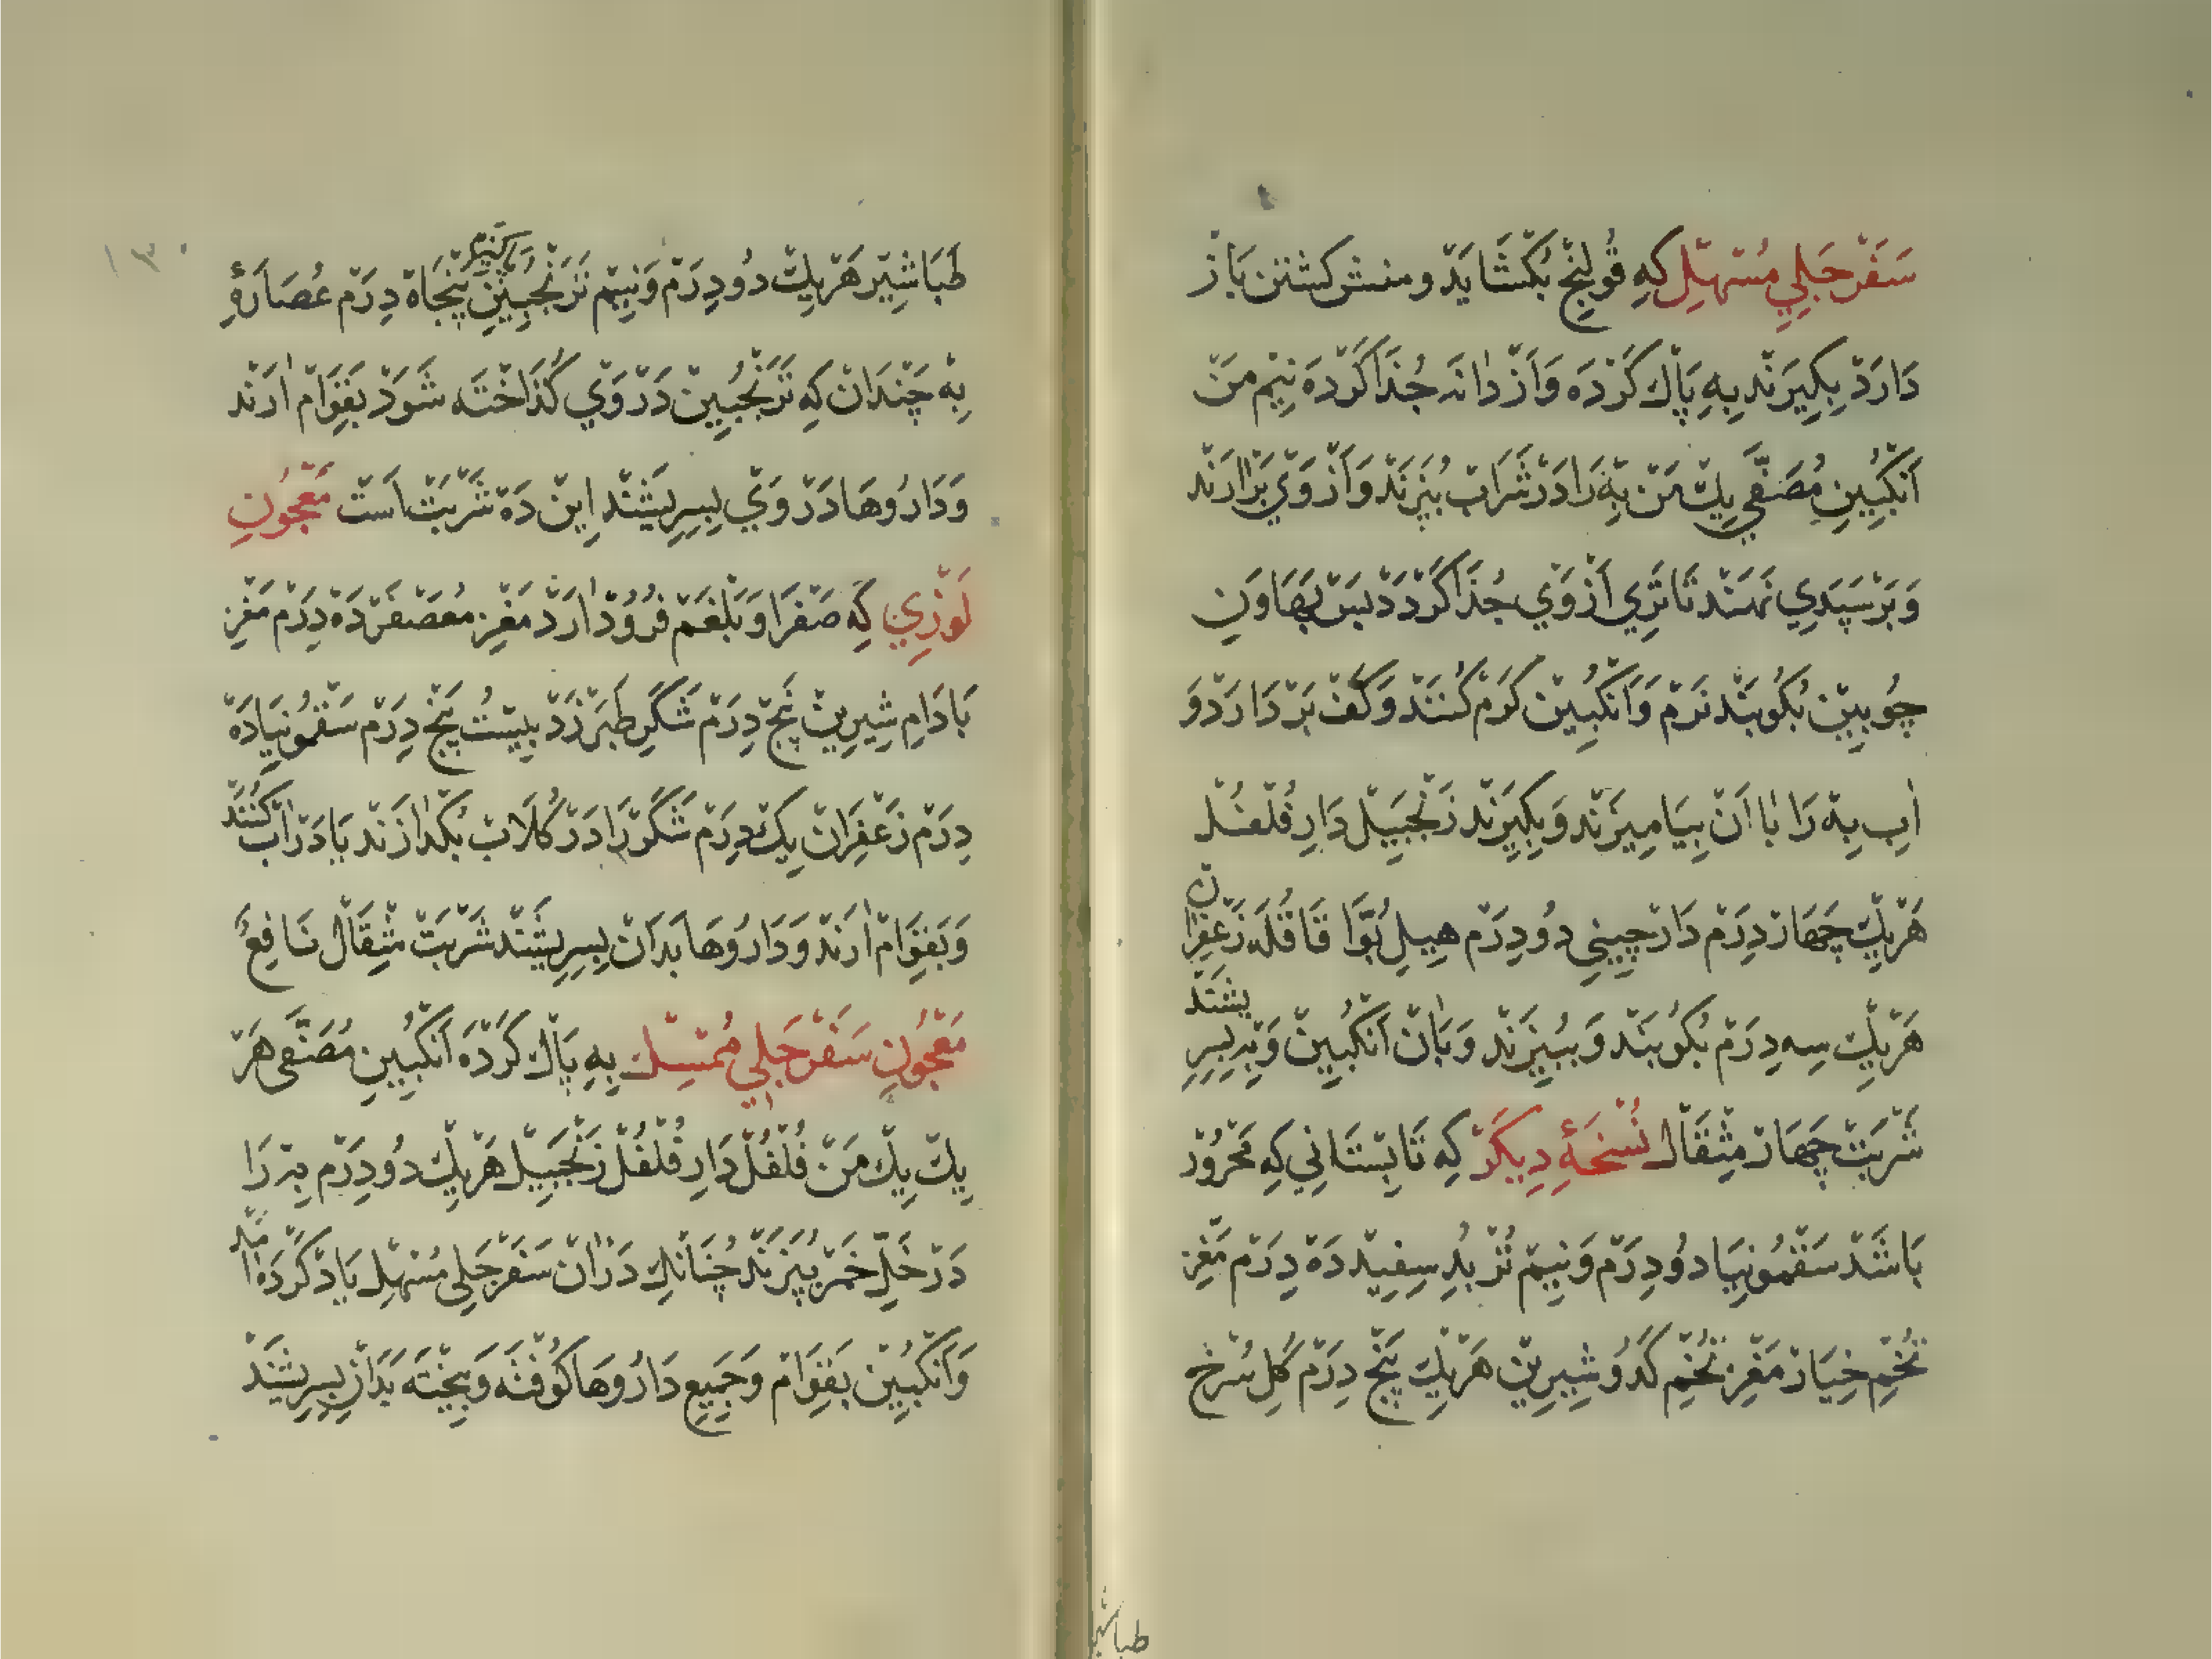 سَفَرْجَلِيِ مُسْهِلْ كِه قُولَنْجْ بُكْشَايَدْ و منش كشتن بَازْ
دَارَدْ بِكِيرَنْد بِهِ پَاكْ كَرْدَه وَازْ دانَه جُدَا كَرْدَه نِيم مَنْ
اَنْكُبِينِ مُصَفَّي يِكْ مَنْ بِهْ رَا دَرْ شَرَابْ بُپَزَنْد وَ اَزْ وَيْ بَرْ اارَنْد
وَ بَرْ سَپَدِي نَهَنْد تَا تَرِي اَزْ وَيْ جُذَا كَرْدَدْ پَسْ بَهَاوَنِ
چُوبِينْ بُكُوبَنْد نَرْم وَ اَنْكُبِينْ كَرْم كُنَنْد وَ كَفْ بَرْ دَارَدْ وَ
ابِ بِهْ رَا بَا انْ بِيَامِيزَنْد وَ بِكِيرَنْد زَنْجَبِيلْ دَارِ فُلْفُلْ
هَرْيِكْ چَهَارْ دِرَمْ دَارْچِينِي دُو دِرَمْ هِيلِ بُوَّا قَاقُلَه زَعْفِرَانْ
هَرْيِكْ سِه دِرَمْ بُكُوبَنْد وَ بِبِيزَنْد وَ بَانْ اَنْكُبِينْ وَ بِهْ بِسِرِيشَنْد
شَرْبَتْ چَهَارْ مِثْقَالْ نُسْخَهٔ دِيكَرْ كِه تَابِسْتَانِي كِه مَحْرُورْ
بَاشَدْ سَقْمُونِيَا دُو دِرَمْ وَ نِيمْ تُرْبُدِ سِفِيدْ دَهْ دِرَمْ مَغْزِ
تُخْمِ خِيَارْ مَغْزِ تُخْمِ كَدُو شِيرِينْ هَرْيِكْ پَنْجْ دِرَمْ كُلِ سُرْخْ
طباشير
١٣٠
طَبَاشِيرْ هَرْيِكْ دُو دِرَمْ وَ نِيم تَرَنْجُبِينِ پَاكِيزه پَنْجَاهْ دِرَم عُصَارَهٔ
بِهْ چَنْدَانْ كِه تَرَنْجُبِينْ دَرْ وَيْ كُدَاخْتَه شَوَدْ بَقِوَامْ ارَنْد
وَ دَارُوهَا دَرْ وَيْ بِسِرِيشَنْد اِينْ دَهْ شَرْبَتْ اسَتْ مَعْجُونِ
لَوْزِي كِه صَفْرَا وَ بَلْغَمْ فُرُودْ ارَدْ مَغْزِ مُعَصْفَرْ دَهْ دِرَمْ مَغْزِ
بَادَامِ شِيرِينْ پَنْجْ دِرَمْ شَكَرِ طَبَرْزَدْ بِيسْتُ پَنْجْ دِرَمْ سَقْمُونِيَا دَهْ
دِرَمْ زَعْفِرَانْ يِكْ دِرَمْ شَكَرْ رَا دَرْ كُلَابْ بُكْدازَنْد يَا دَرْ ابْ كُنَنْد
وَ بَقِوَامْ ارَنْد وَ دَارُوهَا بَدَانْ بِسِرِيشَنْد شَرْبَتْ مِثْقَالْ نَافِعْ
مَعْجُونِ سَفَرْجَلِي مُمْسِكْ بِهِ پَاكْ كَرْدَه اَنْكُبِينِ مُصَفَّى هَرْ
يِكْ يِكْ مَنْ فُلْفُلْ دَارِ فُلْفُلْ زَنْجَبِيلْ هَرْيِكْ دُو دِرَمْ بِهْ رَا
دَرْ خَلِّ خَمْرْ بُپَزَنْد چُنَانْكِ دَرْ انْ سَفَرْجَلِي مُسْهِلْ يَادْ كَرْدَه امَدْ
وَ اَنْكُبِينْ بَقِوَامْ وَ جَمِيعِ دَارُوهَا كُوفْتَه وَ بِيخْتَه بَدَانْ بِسِرِيشَنْد